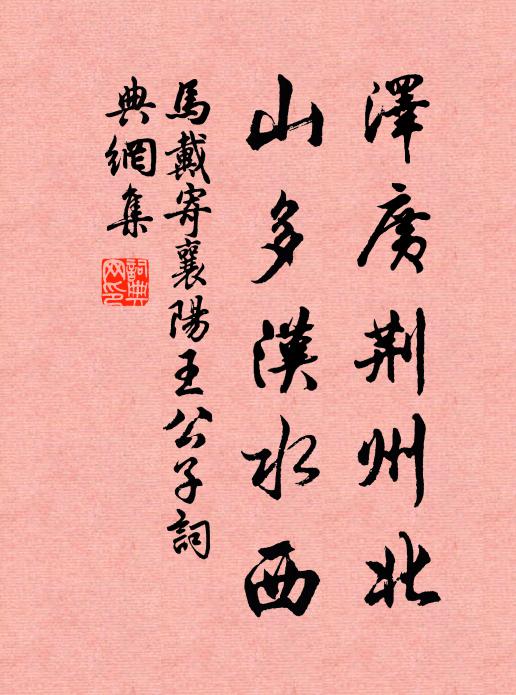 澤廣荆州北
山多漢水西
馬戴寄襄陽王公子詞
典網集
詞典網印